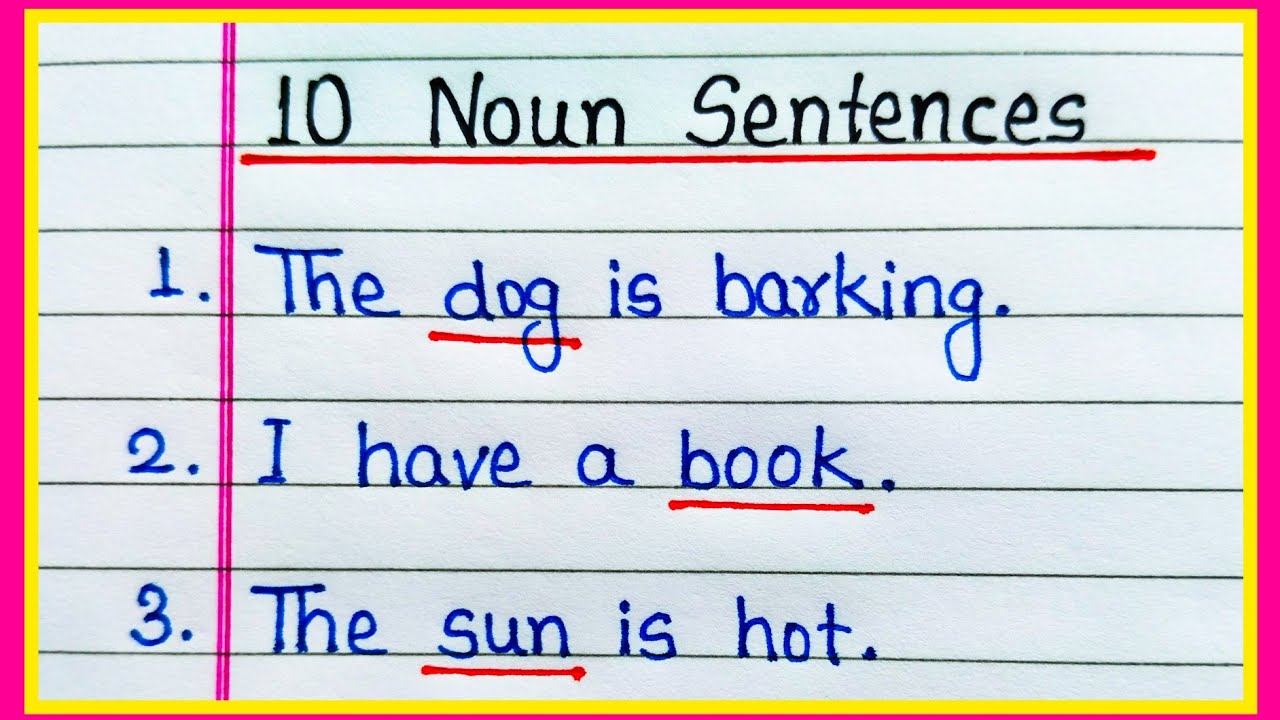 10 Noun Sentences
1. The dog is barking.
2. I have a book.
3. The sun is hot.